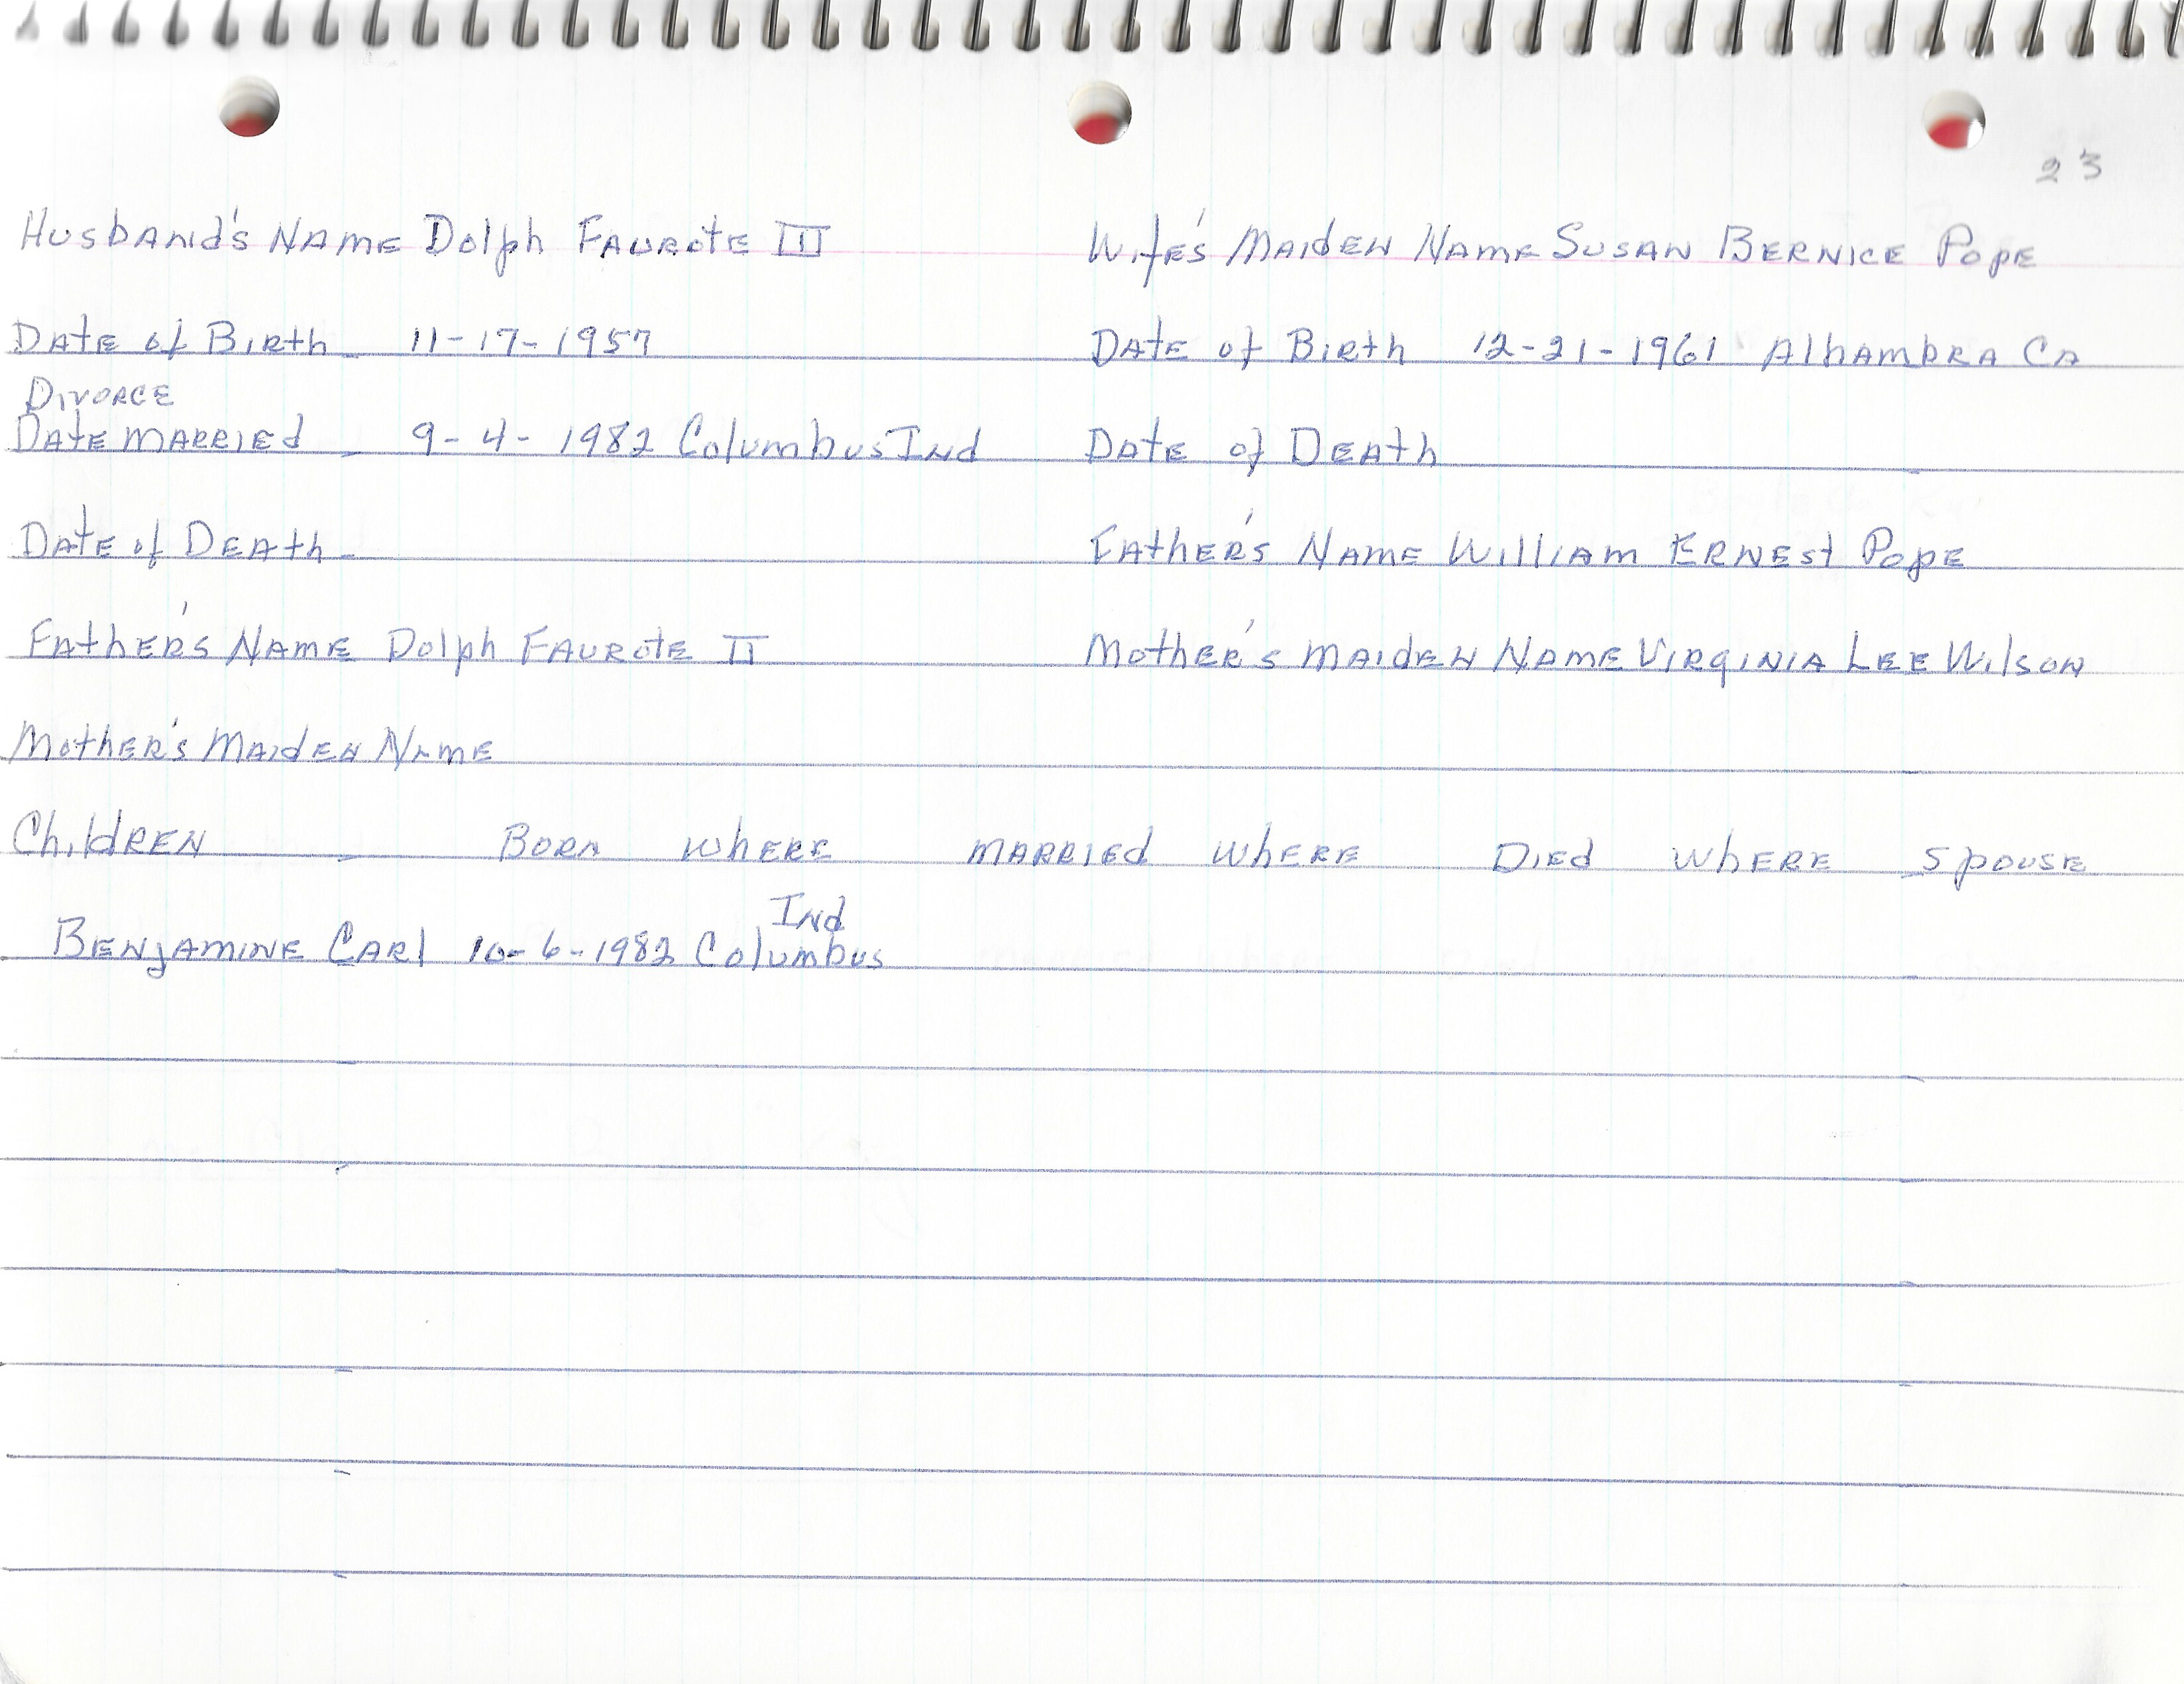 23
Husband's Name Dolph Faurote III
Wife's Maiden Name Susan Bernice Pope
Date of Birth - 11-17-1957
Date of Birth 12-21-1961 Alhambra Ca
Divorce
Date Married - 9-4-1982 Columbus Ind
Date of Death
Date of Death -
Father's Name William Ernest Pope
Father's Name Dolph Faurote II
Mother's Maiden Name Virginia Lee Wilson
Mother's Maiden Name
Children - Born Where Married Where Died Where Spouse
Ind
Benjamine Carl 10-6-1982 Columbus